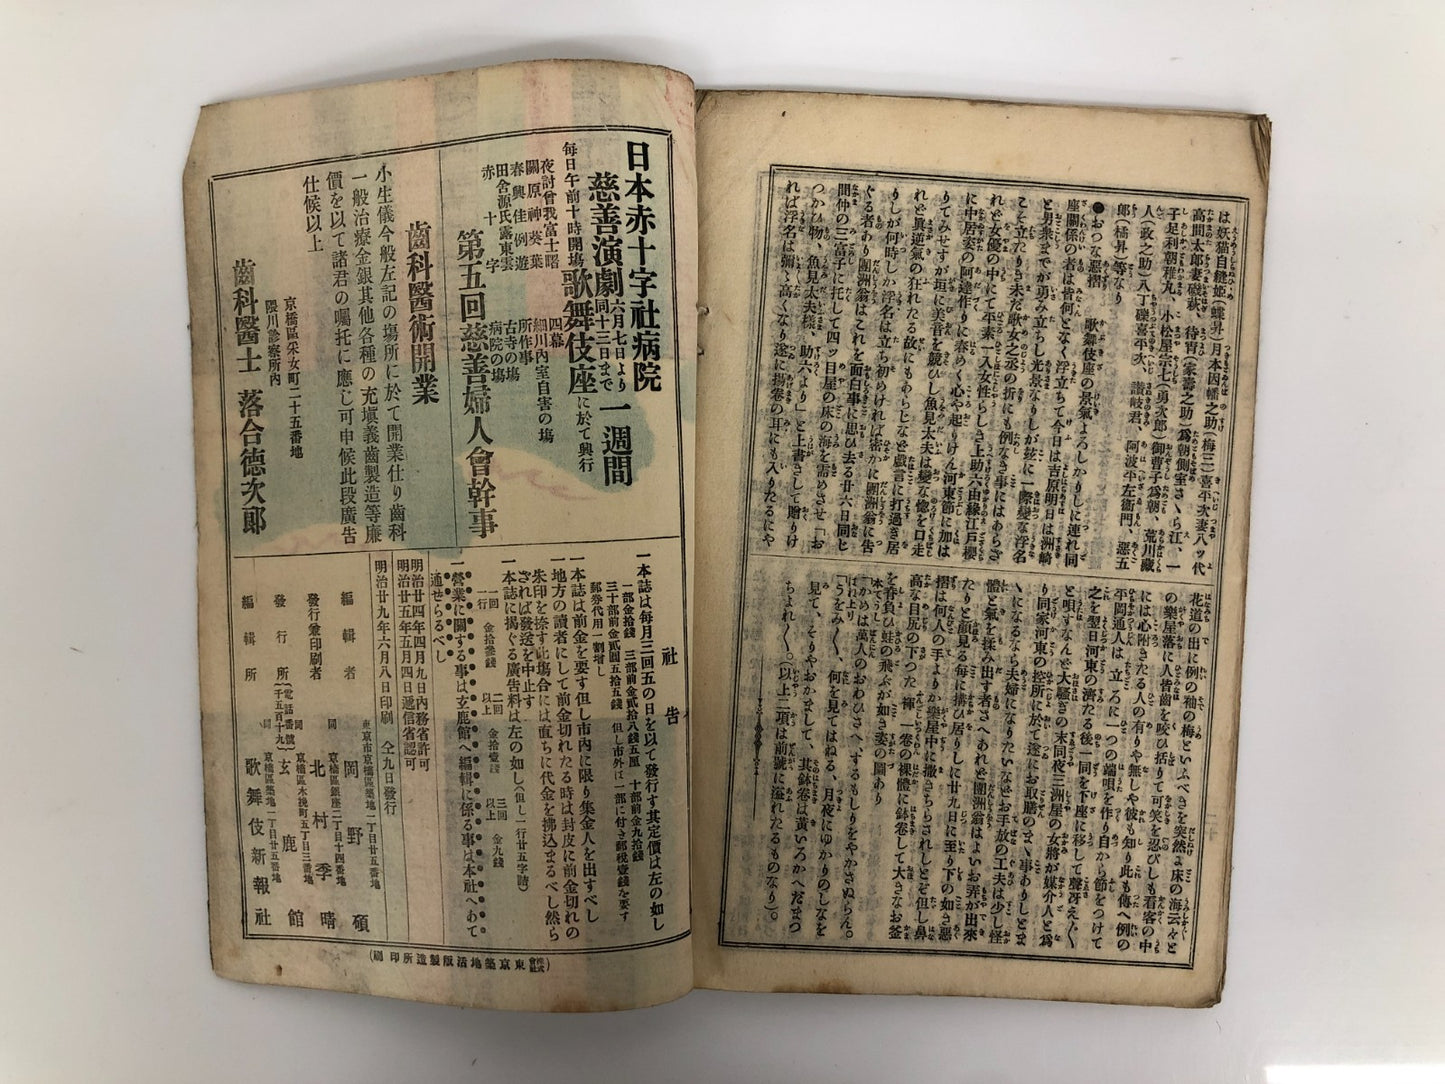 は妖猫自縫姫(蝶昇)月本因幡之助(梅三)喜平次妻八ッ代
高間太郎妻磯萩、待宵(家壽之助)爲朝側室さゝら江、一
子足利朝稚丸、小松屋宗七(勇次郎)御曹子爲朝、荒川藏
人(政之助)八丁礫喜平次、讃岐君、阿波平左衞門、惡五
郎(橘昇)等なり
●おつな惡摺　歌舞伎座の景氣よろしかりしに連れ同
座關係の者は皆何となく浮立ちて今日は吉原明日は洲崎
と男衆までが勇み立ちし光景なりしが茲に一際變な浮名
こそ立たりき未だ歌女之丞の折にも例なき事にはあらざ
れど女優の中にて平素一入女性らしき上助六由縁江戸櫻
に中居姿の阿達作りに春めく心や起りけん河東節に加は
りてみせすが垣に美音を競ひし魚見太夫は變な德を口走
れど眞逆氣の狂れたる故にもあらじなど戯言に打過ぎ居
りしが何時しか浮名は立ち初めければ密かに團洲翁に告
ぐる者あり團洲翁はこれを面白事に思ひ去る廿六日同ヒ
間仲の三富子に托して四ッ目屋の床の海を需めさせ「お
つかひ物、魚見太夫樣、助六より」と上書きして贈りけ
れば浮名は彌々高くなり遂に揚卷の耳にも入りたるにや
花道の出に例の袖の梅といふべきを突然よ床の海云々と
の樂屋落に人皆齒を咬ひ括りて可笑を忍びしも看客の中
には心附きたる人の有りや無しや彼も知り此も傳へ例の
平岡通人は立ろに一つの端唄を作り自から節をつけて
之を聖日河東の濟たる後一同を下座に移して聲冴えたく
と唄すなんど大騷ぎの末同夜三洲屋の女將が媒介人と爲
り同家河東の控所に於て遂にお取膳のまゝ事ありしとま
ゝになるなら夫婦になりたいなぜお手放の工夫は少し怪
體と氣を揉み出す者さへあれど團洲翁はよいお弄が出來
たりと顔見る毎に搆ひ居りしに廿九日に至り下の如き惡
摺は何人の手よりか樂屋中に撒きちらされしとぞ但し鼻
高な目尻の下つた褌一卷の裸體に鉢卷して大きなお釜
を脊負ひ蛙の飛ぶが如き姿の圖あり
かめは萬人のおわひさへするもしりをやかさぬらん。
「うをみく、何を見てはねる、月夜にゆかりのしなを
見て、そりやおかしまして、其鉢卷は黃いろかへだまつ
ちよれく。(以上二項は前號に溢れたるものなり)。
日本赤十字社病院
慈善演劇 六月七日より 同十三日まで 一週間
毎日午前十時開場 歌舞伎座に於て興行
夜討曾我富士曙 四幕
關原神葵葉 細川內室自害の塲
春興佳例遊 所作事
田舎源氏露東雲 古寺の塲
赤十字 病院の塲
第五回慈善婦人會幹事
齒科醫術開業
小生儀今般左記の塲所に於て開業仕り齒科
一般治療金銀其他各種の充塡義齒製造等廉
價を以て諸君の囑托に應じ可申候此段廣告
仕候以上
京橋區采女町二十五番地
隈川診察所內
齒科醫士 落合德次郎
社告
一本誌は毎月三回五の日を以て發行す其定價は左の如し
一部金拾錢 三部前金貳拾八錢五厘 十部前金九拾錢
三十部前金貳圓五拾五錢 但し市外は一部に付き郵稅壹錢を要す
郵券代用一割增し
一本誌は前金を要す但し市內に限り集金人を出すべし
一地方の讀者にして前金切れたる時は封皮に前金切れの
朱印を捺す此塲合には直ちに代金を拂込まるべし然ら
ざれば發送を中止す
一本誌に揭ぐる廣告料は左の如し(但し一行廿五字詰)
一回 金拾叁錢 二回以上 金拾壹錢 三回以上 金九錢
一行
一營業に關する事は玄鹿館へ編輯に係る事は本社へあて
通せらるべし
明治廿四年四月九日內務省許可
明治廿五年五月四日遞信省認可
明治廿九年六月八日印刷 仝九日發行
東京市京橋區築地二丁目廿五番地
編輯者 岡野碩
同 京橋區銀座二丁目十四番地
發行兼印刷者 北村季晴
同 京橋區木挽町五丁目三番地
發行所 (電話番號 千五百十九) 玄鹿館
同 京橋區築地二丁目廿五番地
編輯所 歌舞伎新報社
(株式會社 東京築地活版製造所印刷)